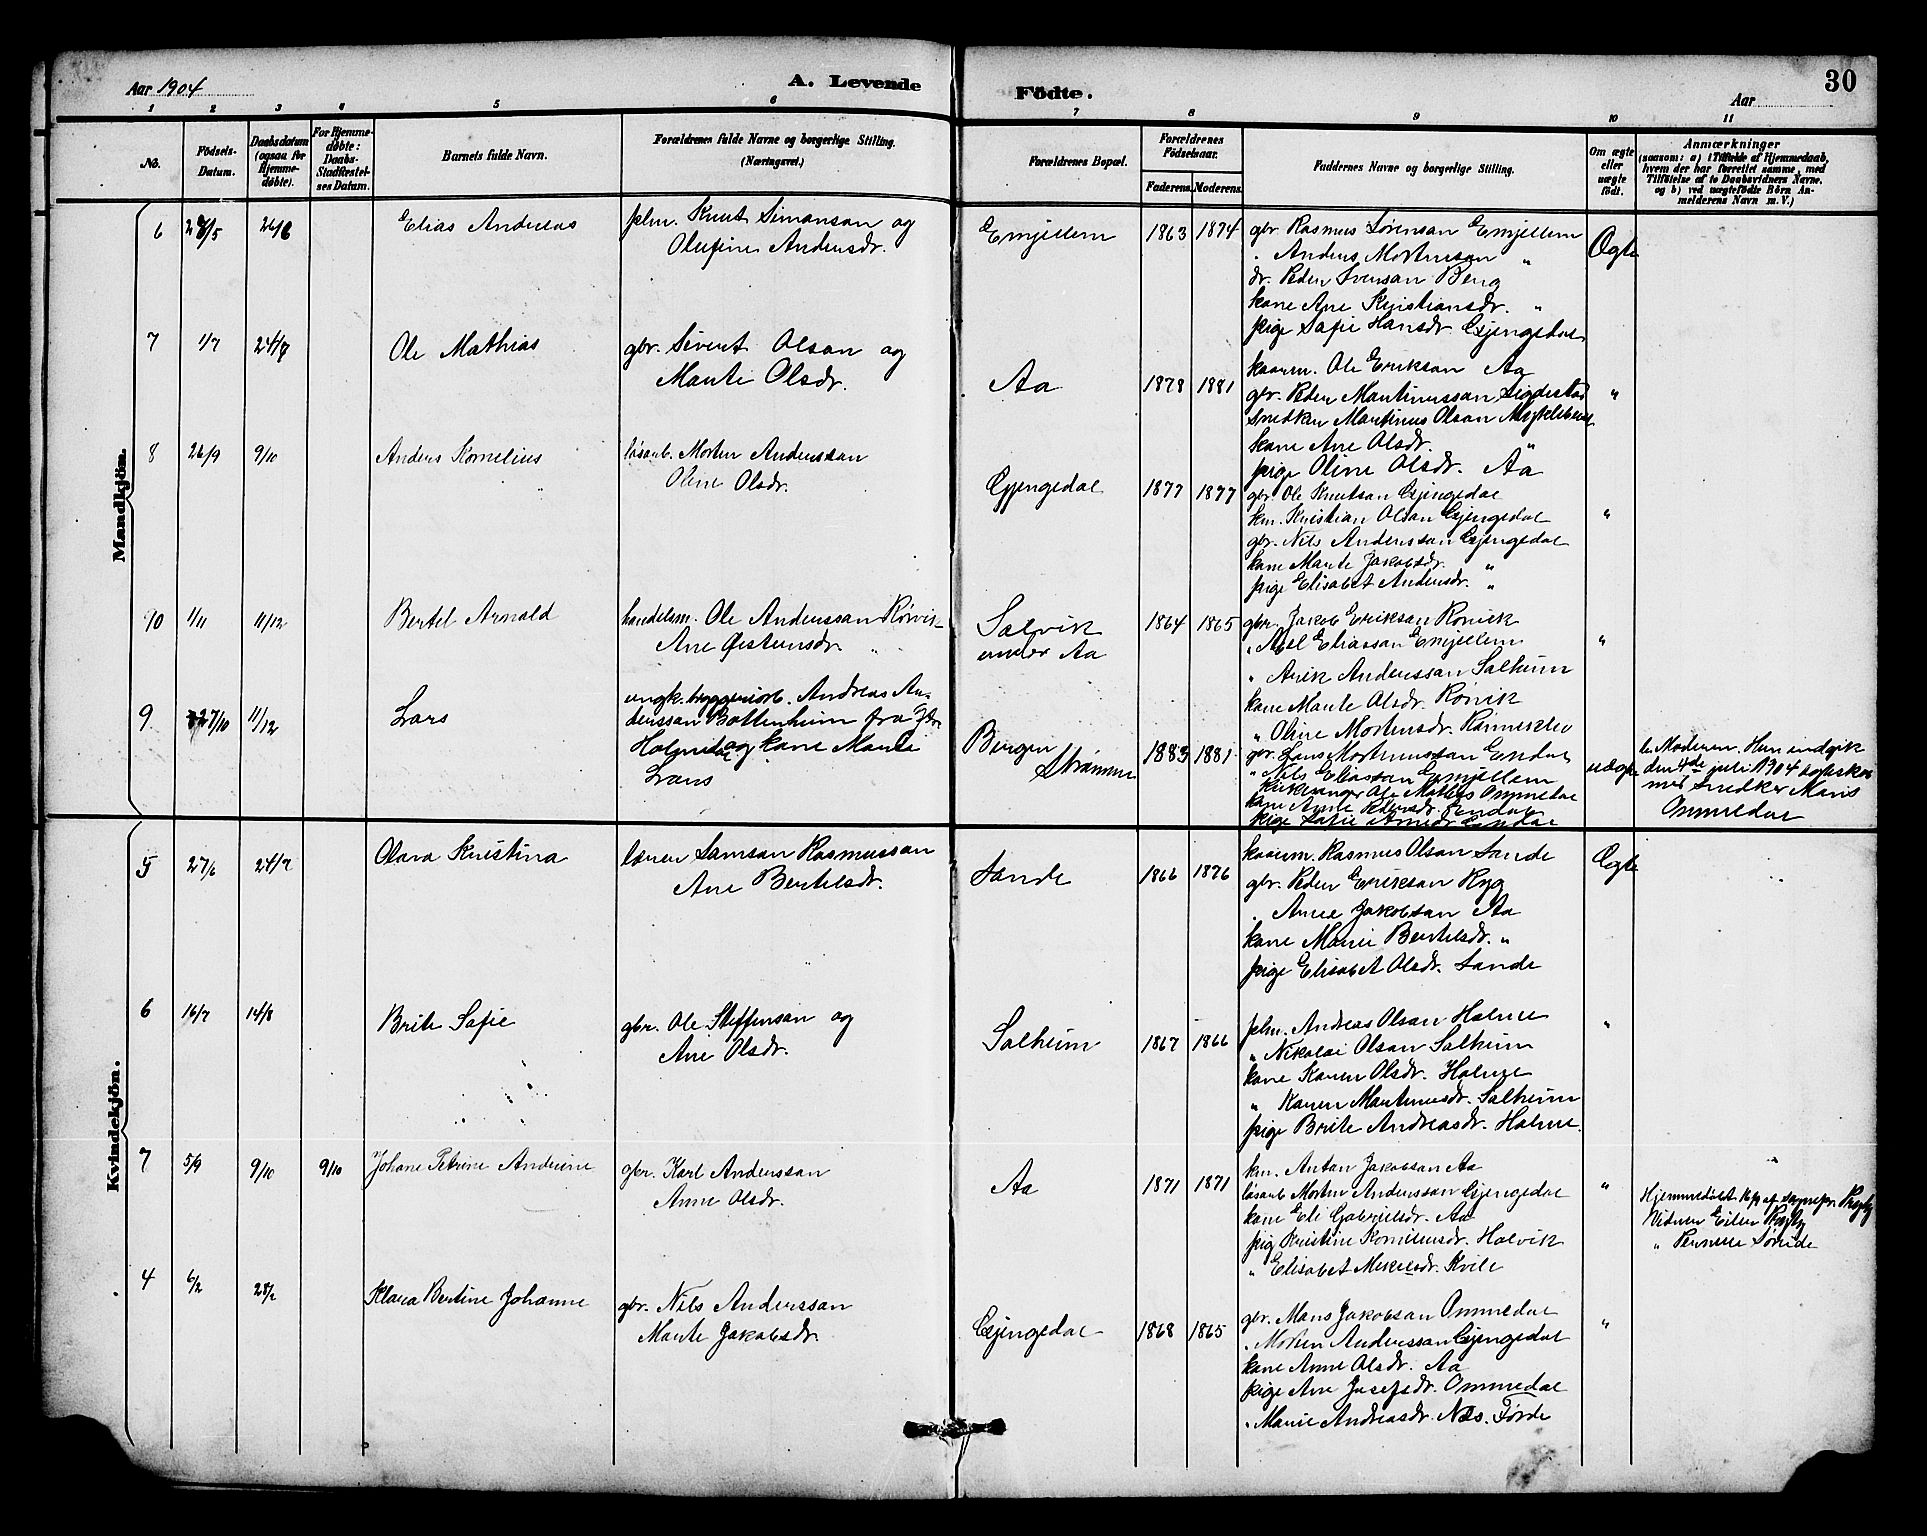 Aar 1904
A. Levende
Födte.
30
Aar
1 2 3 4 5 6 7 8 9 10 11
No.
Födsels-
Datum.
Daabsdatum
(ogsaa for
Hjemme-
døbte).
For Hjemme-
døbte:
Daabs-
Stadfæstel-
ses Datum.
Barnets fulde Navn.
Forældrenes fulde Navne og borgerlige Stilling.
(Næringsvei.)
Forældrenes Bopæl.
Forældrenes
Födselsaar.
Faderens. Moderens.
Faddernes Navne og borgerlige Stilling.
Om ægte
eller
uægte
födt.
Anmærkninger
(saasom: a) i Tilfælde af Hjemmedaab,
hvem der har forrettet samme, med
Tilföielse af to Daabsvidners Navne,
og b) ved uægtefödte Börn An-
melderens Navn m. V.)
Mandkjön.
6 28/5 26/6 Elias Andreas
plm. Knut Simonsen og
Olufine Andersdr.
Emjellem 1863 1874
gbr. Rasmus Sørensen Emjellem
" Anders Mortensen "
dr. Peder Iversen Berg
kone Ane Kristiansdr. "
pige Sofie Hansdr Gjengedal
Ægte
7 1/7 24/7 Ole Mathias
gbr. Sivert Olsen og
Marte Olsdr.
Aa 1878 1881
kaarm. Ole Eriksen Aa
gbr. Peder Martinussen Sigdestad
Snedker Martinus Olsen Myklebust
kone Ane Olsdr. "
pige Oline Olsdr. Aa
"
8 26/9 9/10 Anders Kornelius
løsarb. Morten Anderssen
Oline Olsdr.
Gjengedal 1877 1877
gbr. Ole Knutsen Gjengedal
km. Kristian Olsen Gjengedal
gbr. Nils Anderssen Gjengedal
kone Marte Jakobsdr. "
pige Elisabet Andersdr. "
"
10 1/11 11/12 Bertel Arnold
handelsm. Ole Anderssen Rønvik
Ane Østensdr. "
Solvik
under Aa
1864 1865
gbr. Jakob Eriksen Rønvik
" Abel Eliassen Emjellem
" Anderssen Solheim
kone Marte Olsdr. Rønvik
" Oline Mortensdr.
"
9. 27/10 11/12 Lars
ungk. Andreas An-
derssen Bottenheim fra
og kone Marte
Lars
Bergen
Strømmen
1883 1881
gbr. Lars Mortenssen Endal
" Nils Eliassen Emjellem
Kirkesanger Ole Ommedal
kone Anne Pedersdr. Endal
pige Sofie Endal
uægte
Moderen. Hun indgik
den 4de juli 1904 ægteskab
med Snedker Mons
Ommedal
Kvindekjön.
5 27/6 24/7 Olava Kristina
lærer Samson Rasmussen
Ane Bertelsdr.
Sande 1866 1876
kaarm. Rasmus Olsen Sande
gbr. Peder Eriksen Ryg
" Anne Jakobsen Aa
kone Marie Bertelsdr. "
pige Elisabet Olsdr. Sande
Ægte
6 16/7 14/8 Brite Sofie
gbr. Ole Steffensen og
Ane Olsdr.
Solheim 1867 1866
plm. Andreas Olsen Holme
" Nikolai Olsen Solheim
kone Karen Olsdr. Holme
" Karen Martinusdr. Solheim
pige Brite Andreasdr. Holme.
"
7 5/9 9/10 9/10 Johane Petrine Andrine
gbr. Karl Anderssen
Anne Olsdr.
Aa 1871 1871
km. Anton Jakobsen Aa
løsarb Morten Anderssen Gjengedal
kone Eli Gabrielsdr. Aa
pig Kristine Korneliusdr. Holvik
" Elisabet Mikelsdr. Kvile
"
Hjemmedøbt af sognepr.
Vidner Eilen
" Søreide
4 6/2 28/2 Klara Bertine Johanne
gbr. Nils Anderssen
Marte Jakobsdr.
Gjengedal 1868 1865
gbr. Mons Jakobsen Ommedal
" Morten Anderssen Gjengedal
kone Anne Olsdr. Aa
pige Ane Josefsdr. Ommedal
" Marie Andreasdr. Nes. Førde
"